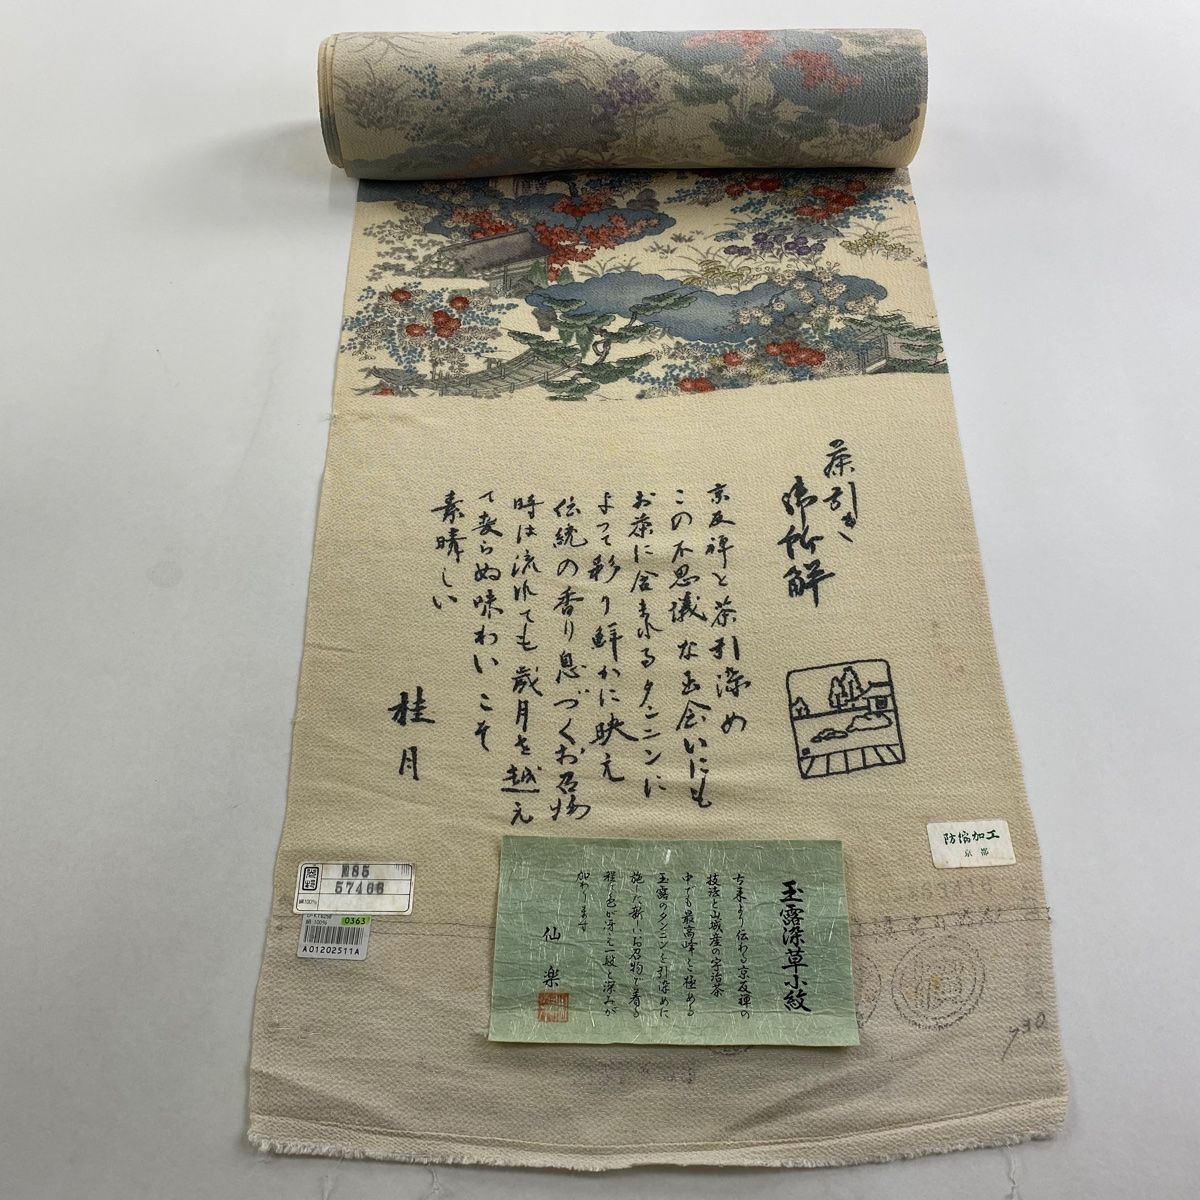 茶引き
御所解
京友禅と茶引染め
この不思議な出会いにも
お茶に含まれるタンニンに
よって彩り鮮かに映え
伝統の香り息づくお召物
時は流れても歳月を越え
て変らぬ味わいこそ
素晴しい
桂月
防縮加工
京都
玉露染草小紋
古来より伝わる京友禅の
技法と山城産の宇治茶
中でも最高峰と極める
玉露のタンニンを引染めに
施した新しいお召物で着る
程に色が冴え一段と深みが
加わります
仙楽
M85
57466
絹100%
絹100%
0363
A01202511A
730